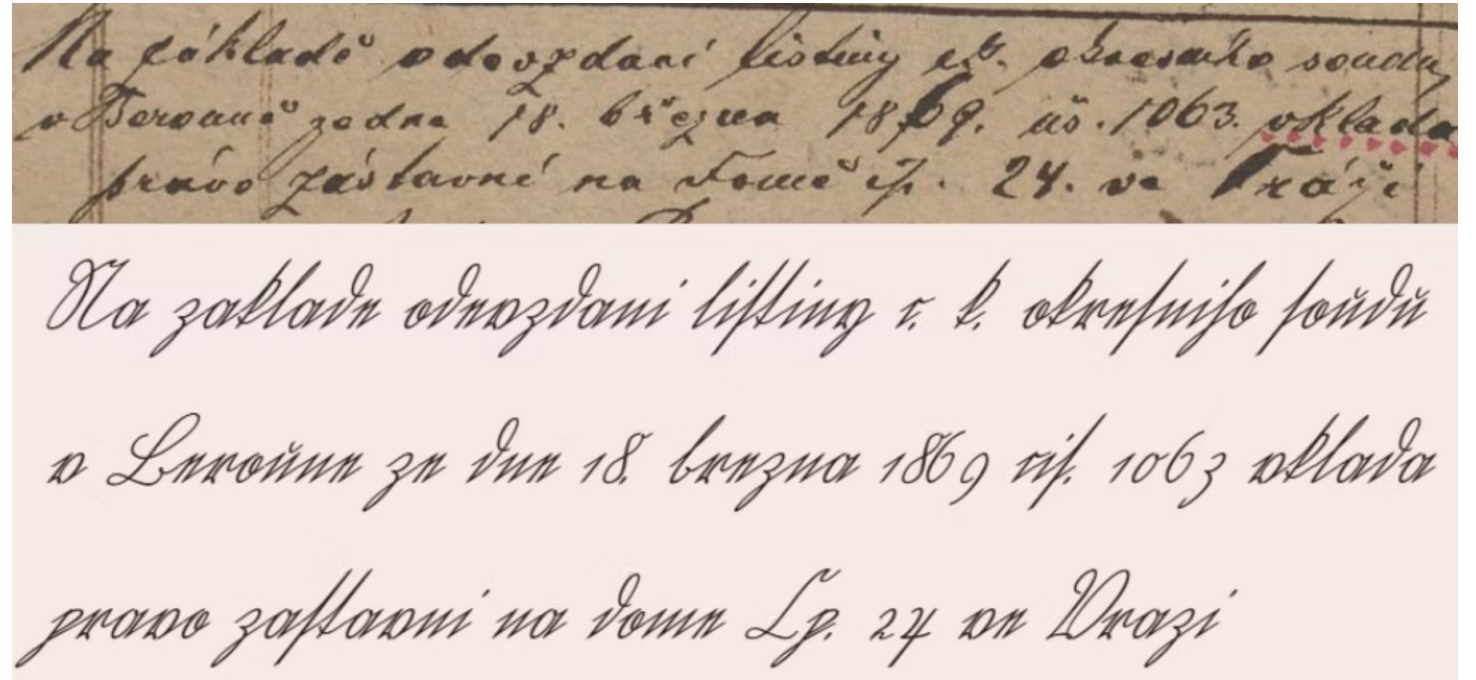 Na základě odevzdaní listiny ck. okresního soudu
v Berouně ze dne 18. března 1869. čis. 1063. vklada
právo zástavní na domě čp. 24. ve Vráži
Na zaklade odevzdani listiny c. k. okresniho soudu
v Beroune ze dne 18. brezna 1869 cis. 1063 vklada
pravo zastavni na dome Cp. 24 ve Vrazi